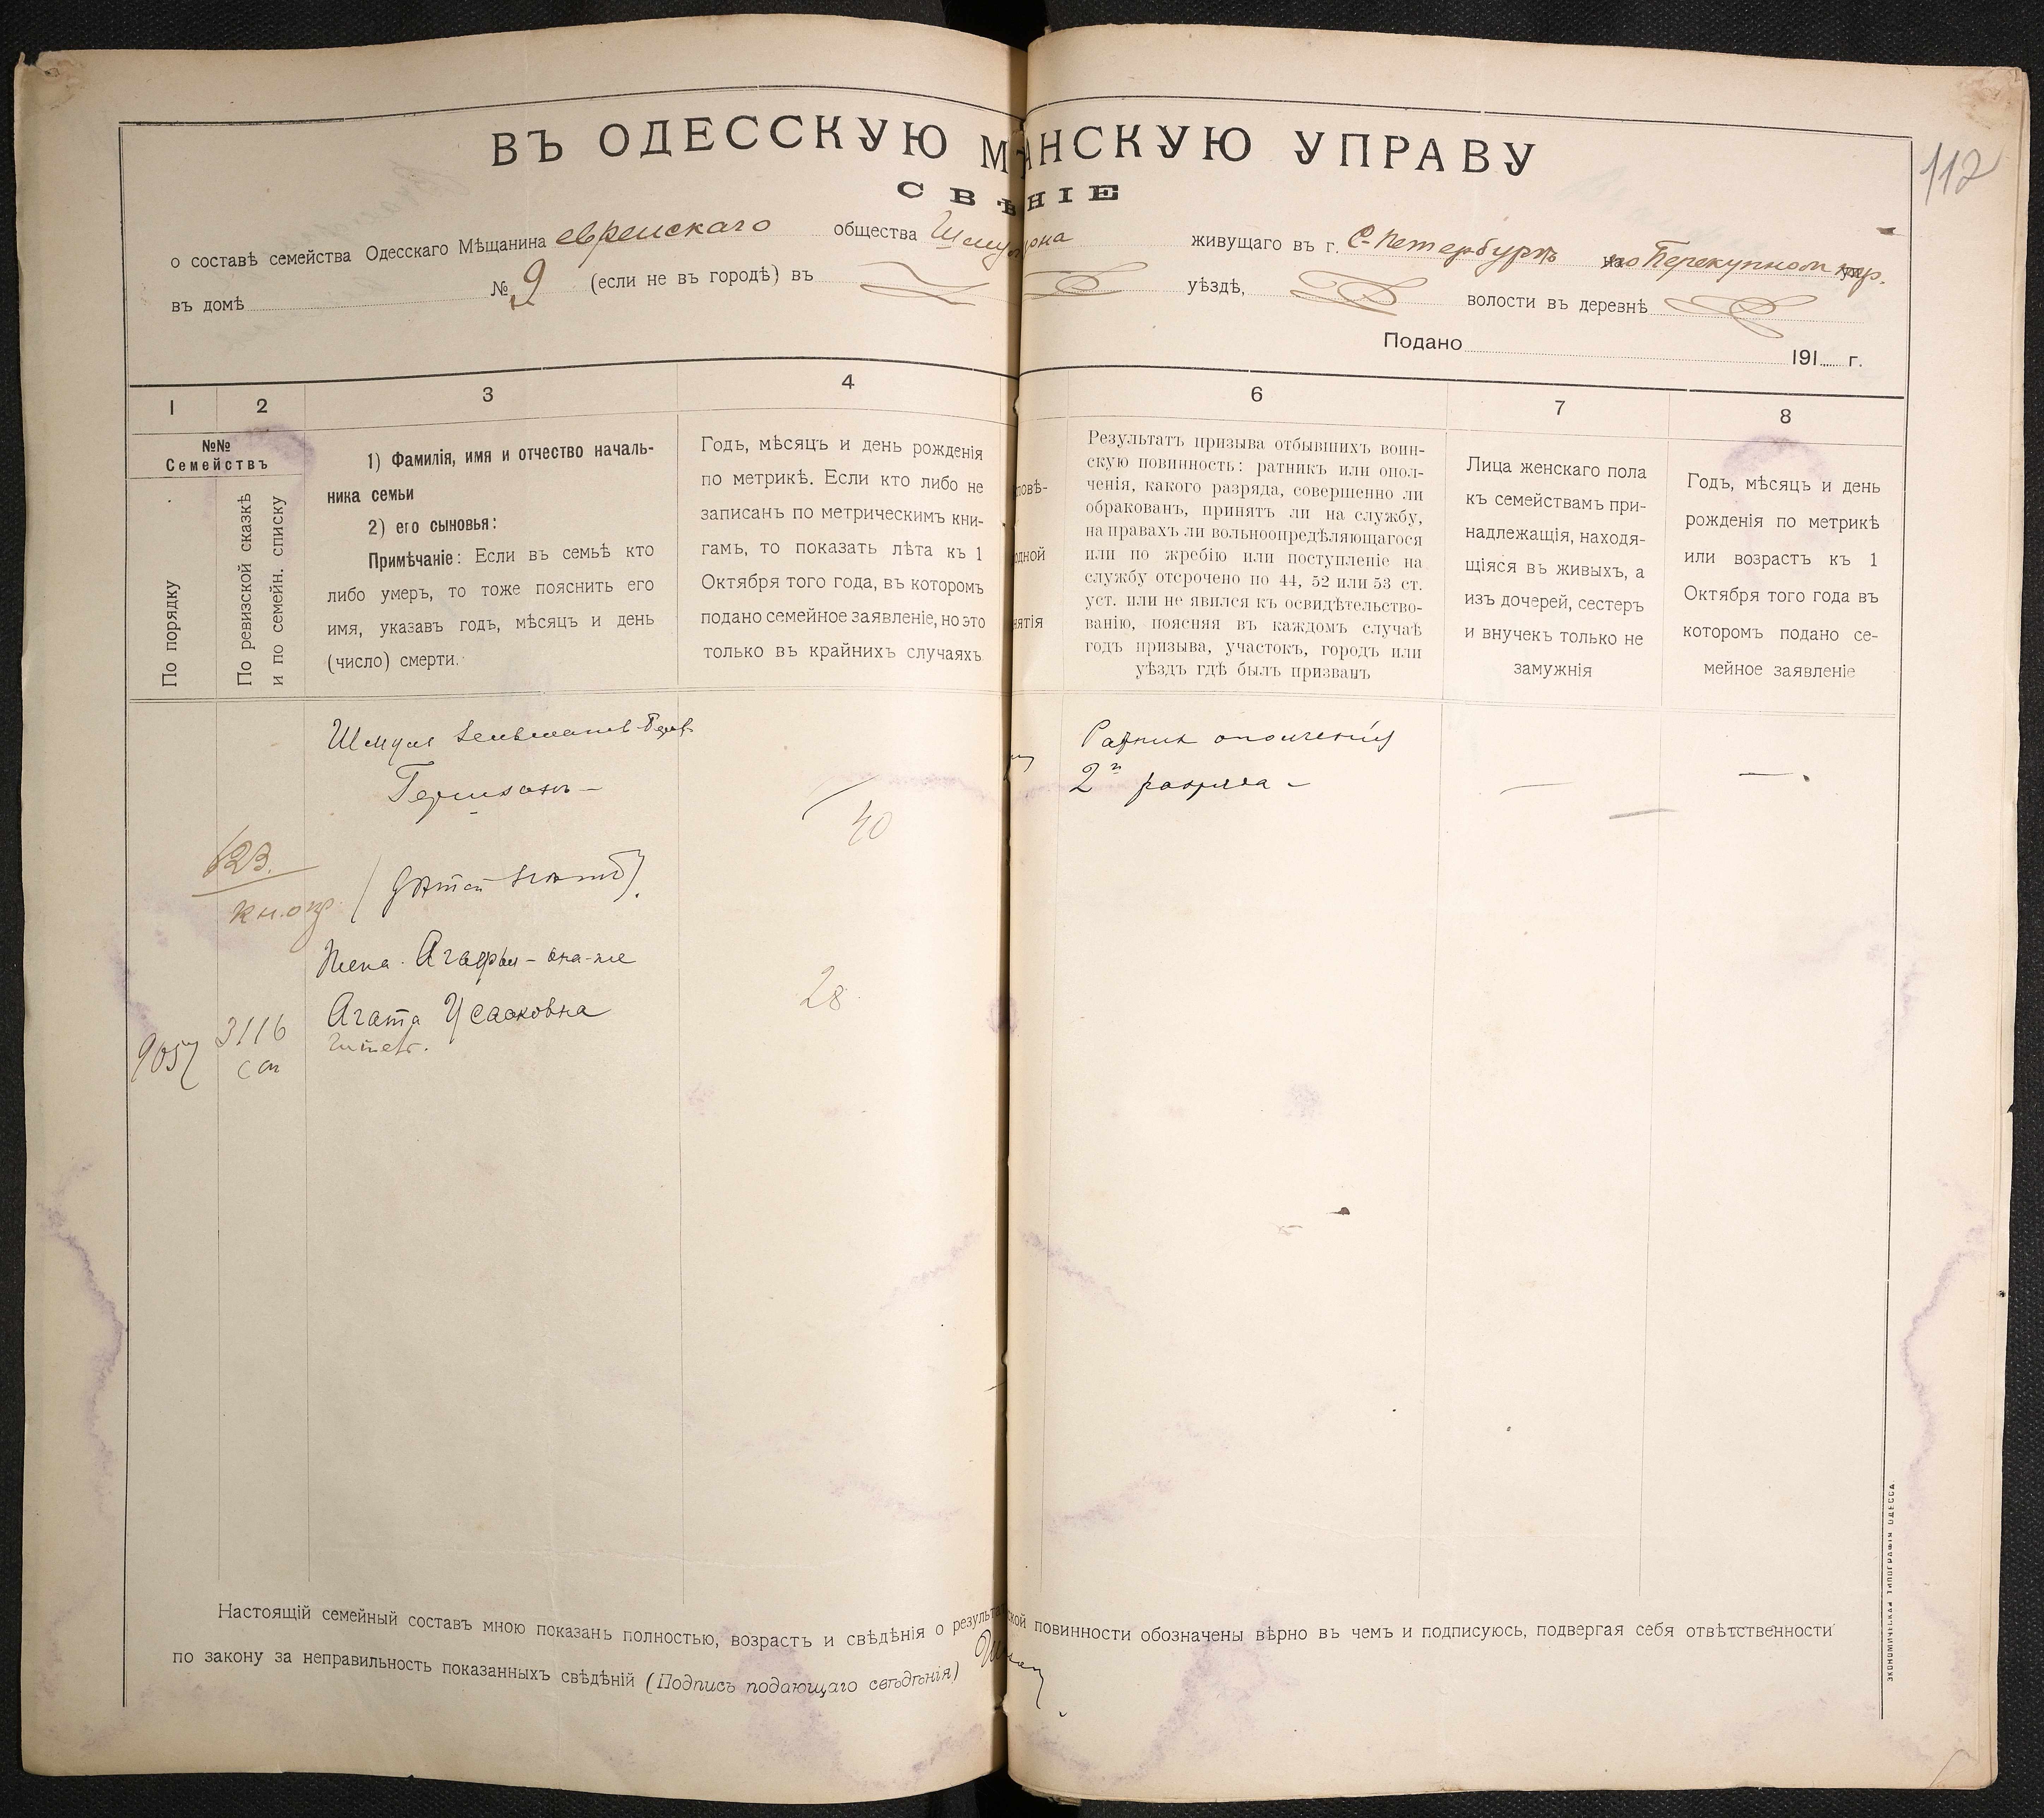 ВЪ ОДЕССКУЮ М АНСКУЮ УПРАВУ
СВѢ НІЕ
112
о составѣ семейства Одесскаго Мѣщанина еврейскаго общества живущаго въ г. С-Петербургѣ по Перекупном пер.
въ домѣ № 9 (если не въ городѣ) въ уѣздѣ, волости въ деревнѣ
Подано 191 г.
1 2 3 4 6 7 8
№№
Семействъ
По порядку
По ревизской сказкѣ
и по семейн. списку
1) Фамилія, имя и отчество началь-
ника семьи
2) его сыновья:
Примѣчаніе: Если въ семьѣ кто
либо умеръ, то тоже пояснить его
имя, указавъ годъ, мѣсяцъ и день
(число) смерти.
Годъ, мѣсяцъ и день рожденія
по метрикѣ. Если кто либо не
записанъ по метрическимъ кни-
гамъ, то показать лѣта къ 1
Октября того года, въ которомъ
подано семейное заявленіе, но это
только въ крайнихъ случаяхъ
повѣ-
одной
нятія
Результатъ призыва отбывшихъ воин-
скую повинность: ратникъ или опол-
ченія, какого разряда, совершенно ли
обракованъ, принятъ ли на службу,
на правахъ ли вольноопредѣляющагося
или по жребію или поступленіе на
службу отсрочено по 44, 52 или 53 ст.
уст. или не явился къ освидѣтельство-
ванію, поясняя въ каждомъ случаѣ
годъ призыва, участокъ, городъ или
уѣздъ гдѣ былъ призванъ
Лица женскаго пола
къ семействамъ при-
надлежащія, находя-
щіяся въ живыхъ, а
изъ дочерей, сестеръ
и внучекъ только не
замужнія
Годъ, мѣсяцъ и день
рожденія по метрикѣ
или возрастъ къ 1
Октября того года въ
которомъ подано се-
мейное заявленіе
Шмуль
Гершкон
40
Ратник ополченія
2 разряда -
623.
кн.
(дѣтей
Жена Агафья - она-же
Агата Исааковна
28
9057
3116
сп
Настоящій семейный составъ мною показанъ полностью, возрастъ и свѣдѣнія о результат ской повинности обозначены вѣрно въ чемъ и подписуюсь, подвергая себя отвѣтственности
по закону за неправильность показанныхъ свѣдѣній (Подпись подающаго свѣдѣнія)
ЭКОНОМИЧЕСКАЯ ТИПОГРАФІЯ ОДЕССА.